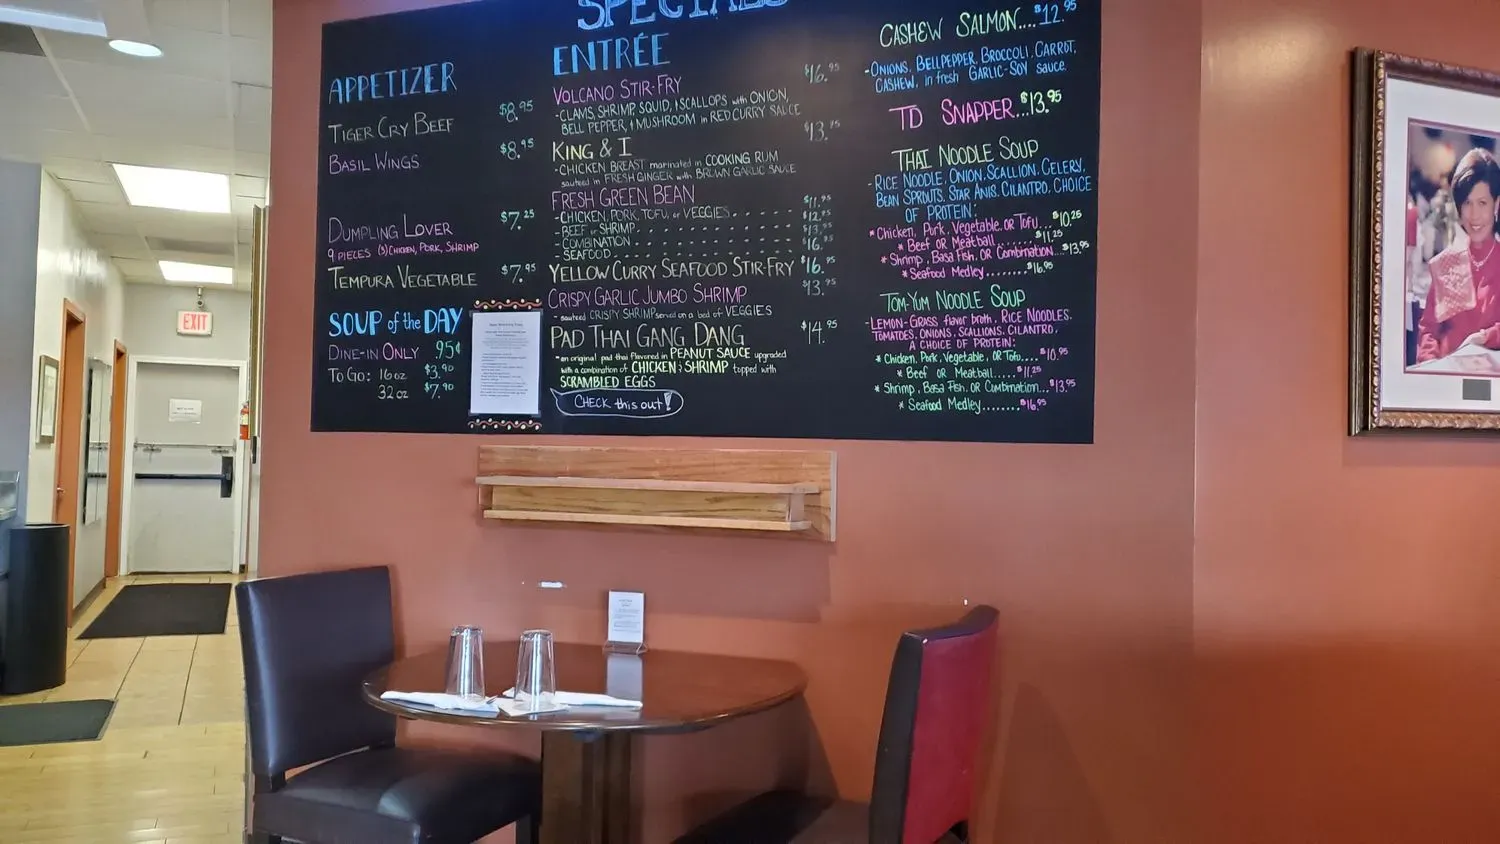 SPECIALS
APPETIZER
TIGER CRY BEEF $8.95
BASIL WINGS $8.95
DUMPLING LOVER $7.25
9 PIECES (3) CHICKEN, PORK, SHRIMP
TEMPURA VEGETABLE $7.95
SOUP of the DAY
DINE-IN ONLY .95¢
TO GO: 16oz $3.90
32 oz $7.90
ENTRÉE
VOLCANO STIR-FRY $16.95
-CLAMS, SHRIMP, SQUID, + SCALLOPS with ONION,
BELL PEPPER, + MUSHROOM in RED CURRY SAUCE
KING & I $13.95
-CHICKEN BREAST marinated in COOKING RUM
sauteed in FRESH GINGER with BROWN GARLIC SAUCE
FRESH GREEN BEAN
-CHICKEN, PORK, TOFU, or VEGGIES $11.95
-BEEF or SHRIMP $12.95
-COMBINATION $13.95
-SEAFOOD $16.95
YELLOW CURRY SEAFOOD STIR-FRY $16.95
CRISPY GARLIC JUMBO SHRIMP $13.95
- sauteed CRISPY SHRIMP served on a bed of VEGGIES
PAD THAI GANG DANG $14.95
*an original pad thai flavored in PEANUT SAUCE upgraded
with a combination of CHICKEN & SHRIMP topped with
SCRAMBLED EGGS
CHECK this out!
CASHEW SALMON....$12.95
-ONIONS, BELLPEPPER, BROCCOLI, CARROT,
CASHEW, in fresh GARLIC-SOY sauce.
TD SNAPPER...$13.95
THAI NOODLE SOUP
-RICE NOODLE, ONION, SCALLION, CELERY,
BEAN SPROUTS, STAR ANIS, CILANTRO, CHOICE
OF PROTEIN:
* Chicken, Pork, Vegetable, OR Tofu...$10.25
* Beef OR Meatball...$11.25
* Shrimp, Basa Fish, OR Combination...$13.95
* Seafood Medley.......$16.95
TOM-YUM NOODLE SOUP
-LEMON-GRASS flavor broth, RICE NOODLES,
TOMATOES, ONIONS, SCALLIONS, CILANTRO,
A CHOICE OF PROTEIN:
* Chicken, Pork, Vegetable, OR Tofu....$10.95
* Beef OR Meatball.....$11.25
* Shrimp, Basa Fish, OR Combination...$13.95
* Seafood Medley.......$16.95
EXIT